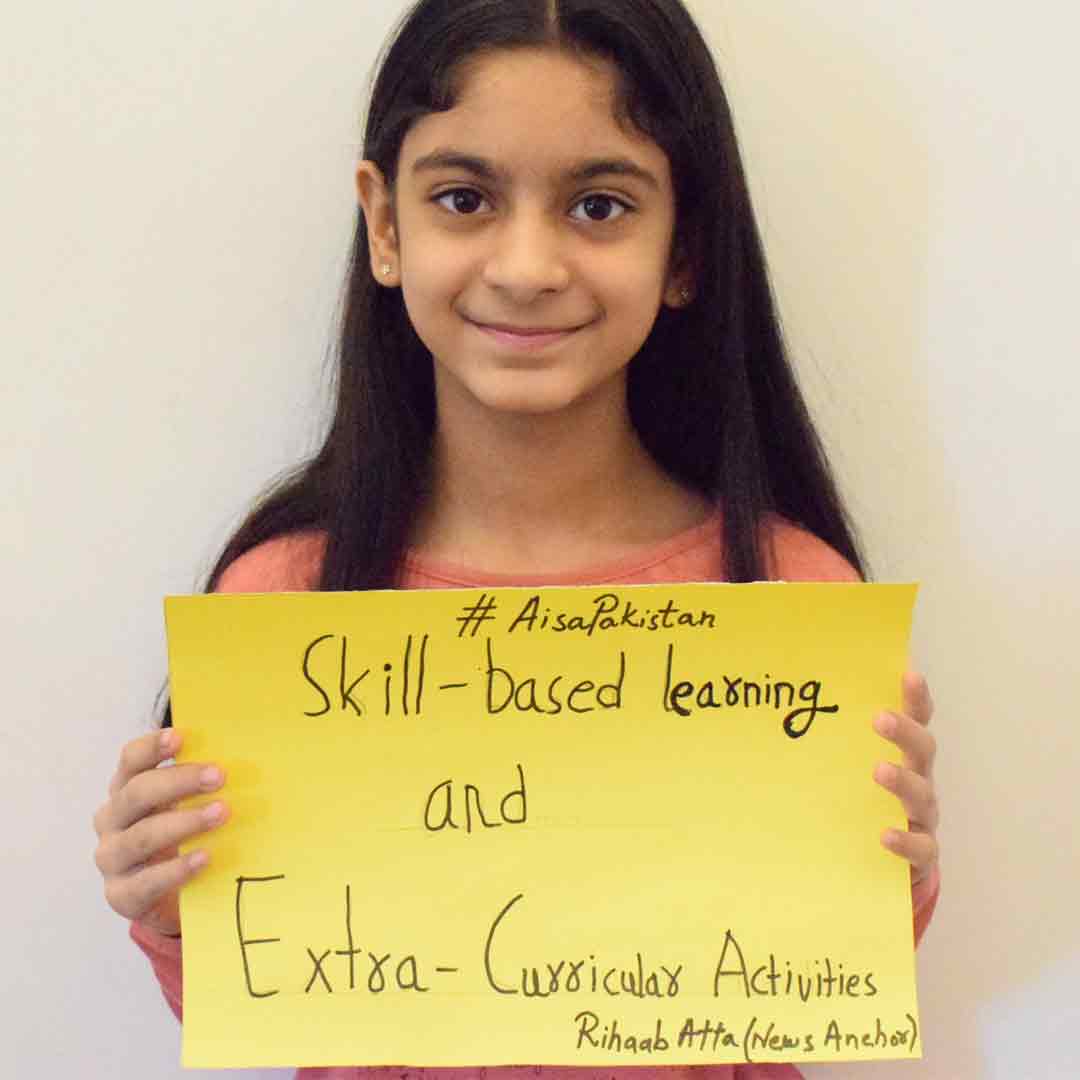 # AisaPakistan
Skill-based learning
and
Extra-Curricular Activities
Rihaab Atta (News Anchor)